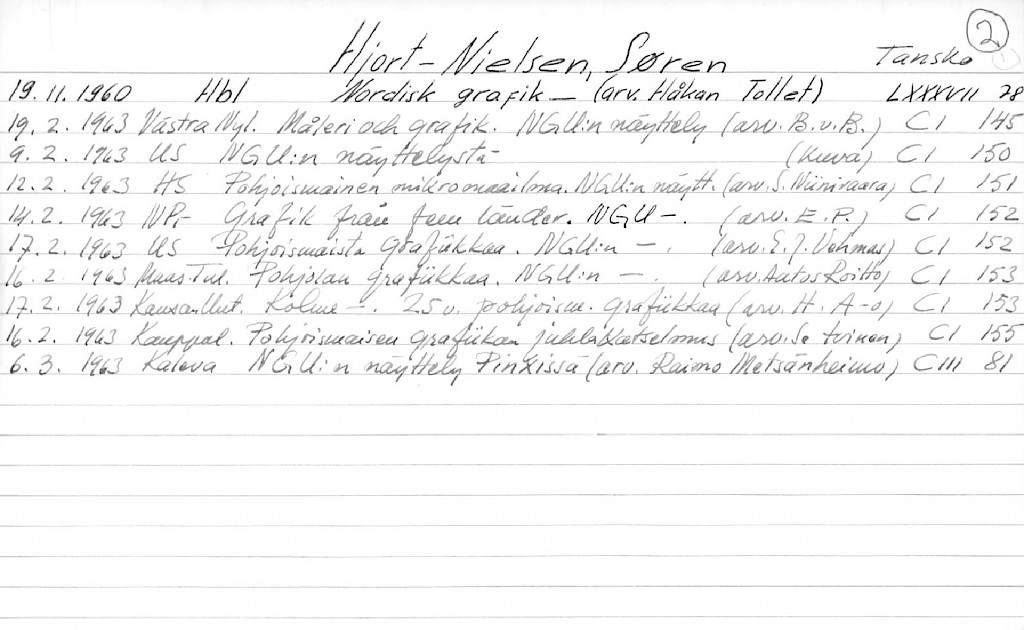 2
Hjort-Nielsen, Søren Tanska
19.11.1960 Hbl Nordisk grafik — (arv. Håkan Tollet) LXXXVII 28
19.2.1963 Västra Nyl. Måleri och grafik. NGU:n näyttely (arv. B.v.B.) CI 145
9.2.1963 US NGU:n näyttelystä (kuva) CI 150
12.2.1963 HS Pohjoismainen mikromaailma. NGU:n näytt. (arv. S. Niinivaara) CI 151
14.2.1963 NP,- Grafik från fem länder. NGU —. (arv. E.P.) CI 152
17.2.1963 US Pohjoismaista grafiikkaa. NGU:n —. (arv. E.J. Vehmas) CI 152
16.2.1963 Maas.Tul. Pohjolan grafiikkaa. NGU:n —. (arv. Aatos Roitto) CI 153
17.2.1963 Kansan Uut. Kolme —. 25 v. pohjoism. grafiikkaa (arv. H. A-o) CI 153
16.2.1963 Kauppal. Pohjoismaisen grafiikan juhlakatselmus (arv. Se toinen) CI 155
6.3.1963 Kaleva NGU:n näyttely Pinxissä (arv. Raimo Metsänheimo) CIII 81